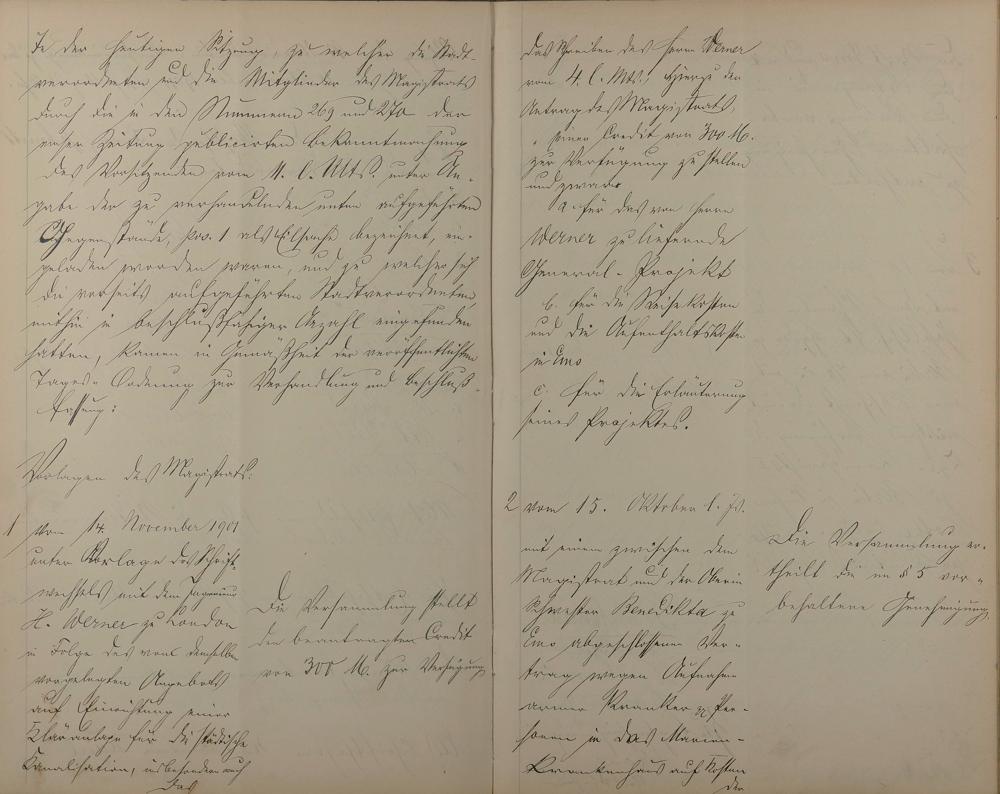 In der heutigen Sitzung, zu welcher die Stadt-
verordneten und die Mitglieder des Magistrats
durch die in den Nummern 269 und 270 der
Zeitung publicirten Bekanntmachung
des Vorsitzenden vom 11. l. Mts. unter An-
gabe der zu verhandelnden unten aufgeführten
Gegenstände, Pos. 1 als Eilsache bezeichnet, ein-
geladen worden waren, und zu welcher sich
die vorseits aufgeführten Stadtverordneten,
mithin in beschlußfähiger Anzahl eingefunden
hatten, kamen in Gemäßheit der veröffentlichten
Tages-Ordnung zur Verhandlung und Beschluß-
fassung:
Vorlagen des Magistrats:
1 vom 14. November 1901
unter Vorlage des Schrift-
wechsels mit dem Ingenieur
H. Werner zu London
in Folge des von demselben
vorgelegten Angebots
auf Einrichtung einer
Kläranlage für die städtische
Kanalisation, insbesondere auch
das
Die Versammlung stellt
den beantragten Credit
von 300 M. zur Verfügung.
das Schreiben des Herrn Werner
vom 4. l. Mts., hierzu den
Antrag des Magistrats,
einen Credit von 300 M.
zur Verfügung zu stellen
und zwar
a. für das von Herrn
Werner zu liefernde
General-Projekt
b. für die Reisekosten
und die Aufenthaltskosten
in Ems
c. für die Erläuterung
seines Projektes.
2 vom 15. Oktober l. Js.
mit einem zwischen dem
Magistrat und der Oberin
Schwester Benedikta zu
Ems abgeschlossenen Ver-
trag wegen Aufnahme
armer Kranker Per-
sonen in das Marien-
Krankenhaus auf Kosten
der
Die Versammlung er-
theilt die im § 5 vor-
behaltene Genehmigung.